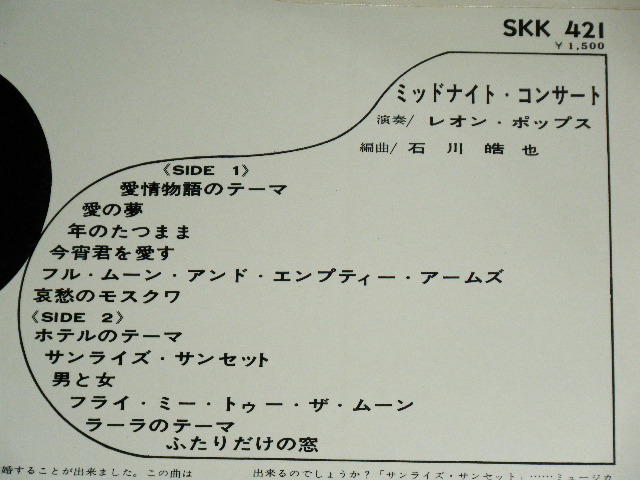 SKK 421
¥1,500
ミッドナイト・コンサート
演奏/ レオン・ポップス
編曲/ 石川皓也
《SIDE 1》
愛情物語のテーマ
愛の夢
年のたつまま
今宵君を愛す
フル・ムーン・アンド・エンプティー・アームズ
哀愁のモスクワ
《SIDE 2》
ホテルのテーマ
サンライズ・サンセット
男と女
フライ・ミー・トゥー・ザ・ムーン
ラーラのテーマ
ふたりだけの窓
婚することが出来ました。この曲は
出来るのでしょうか？「サンライズ・サンセット」……ミュージカ